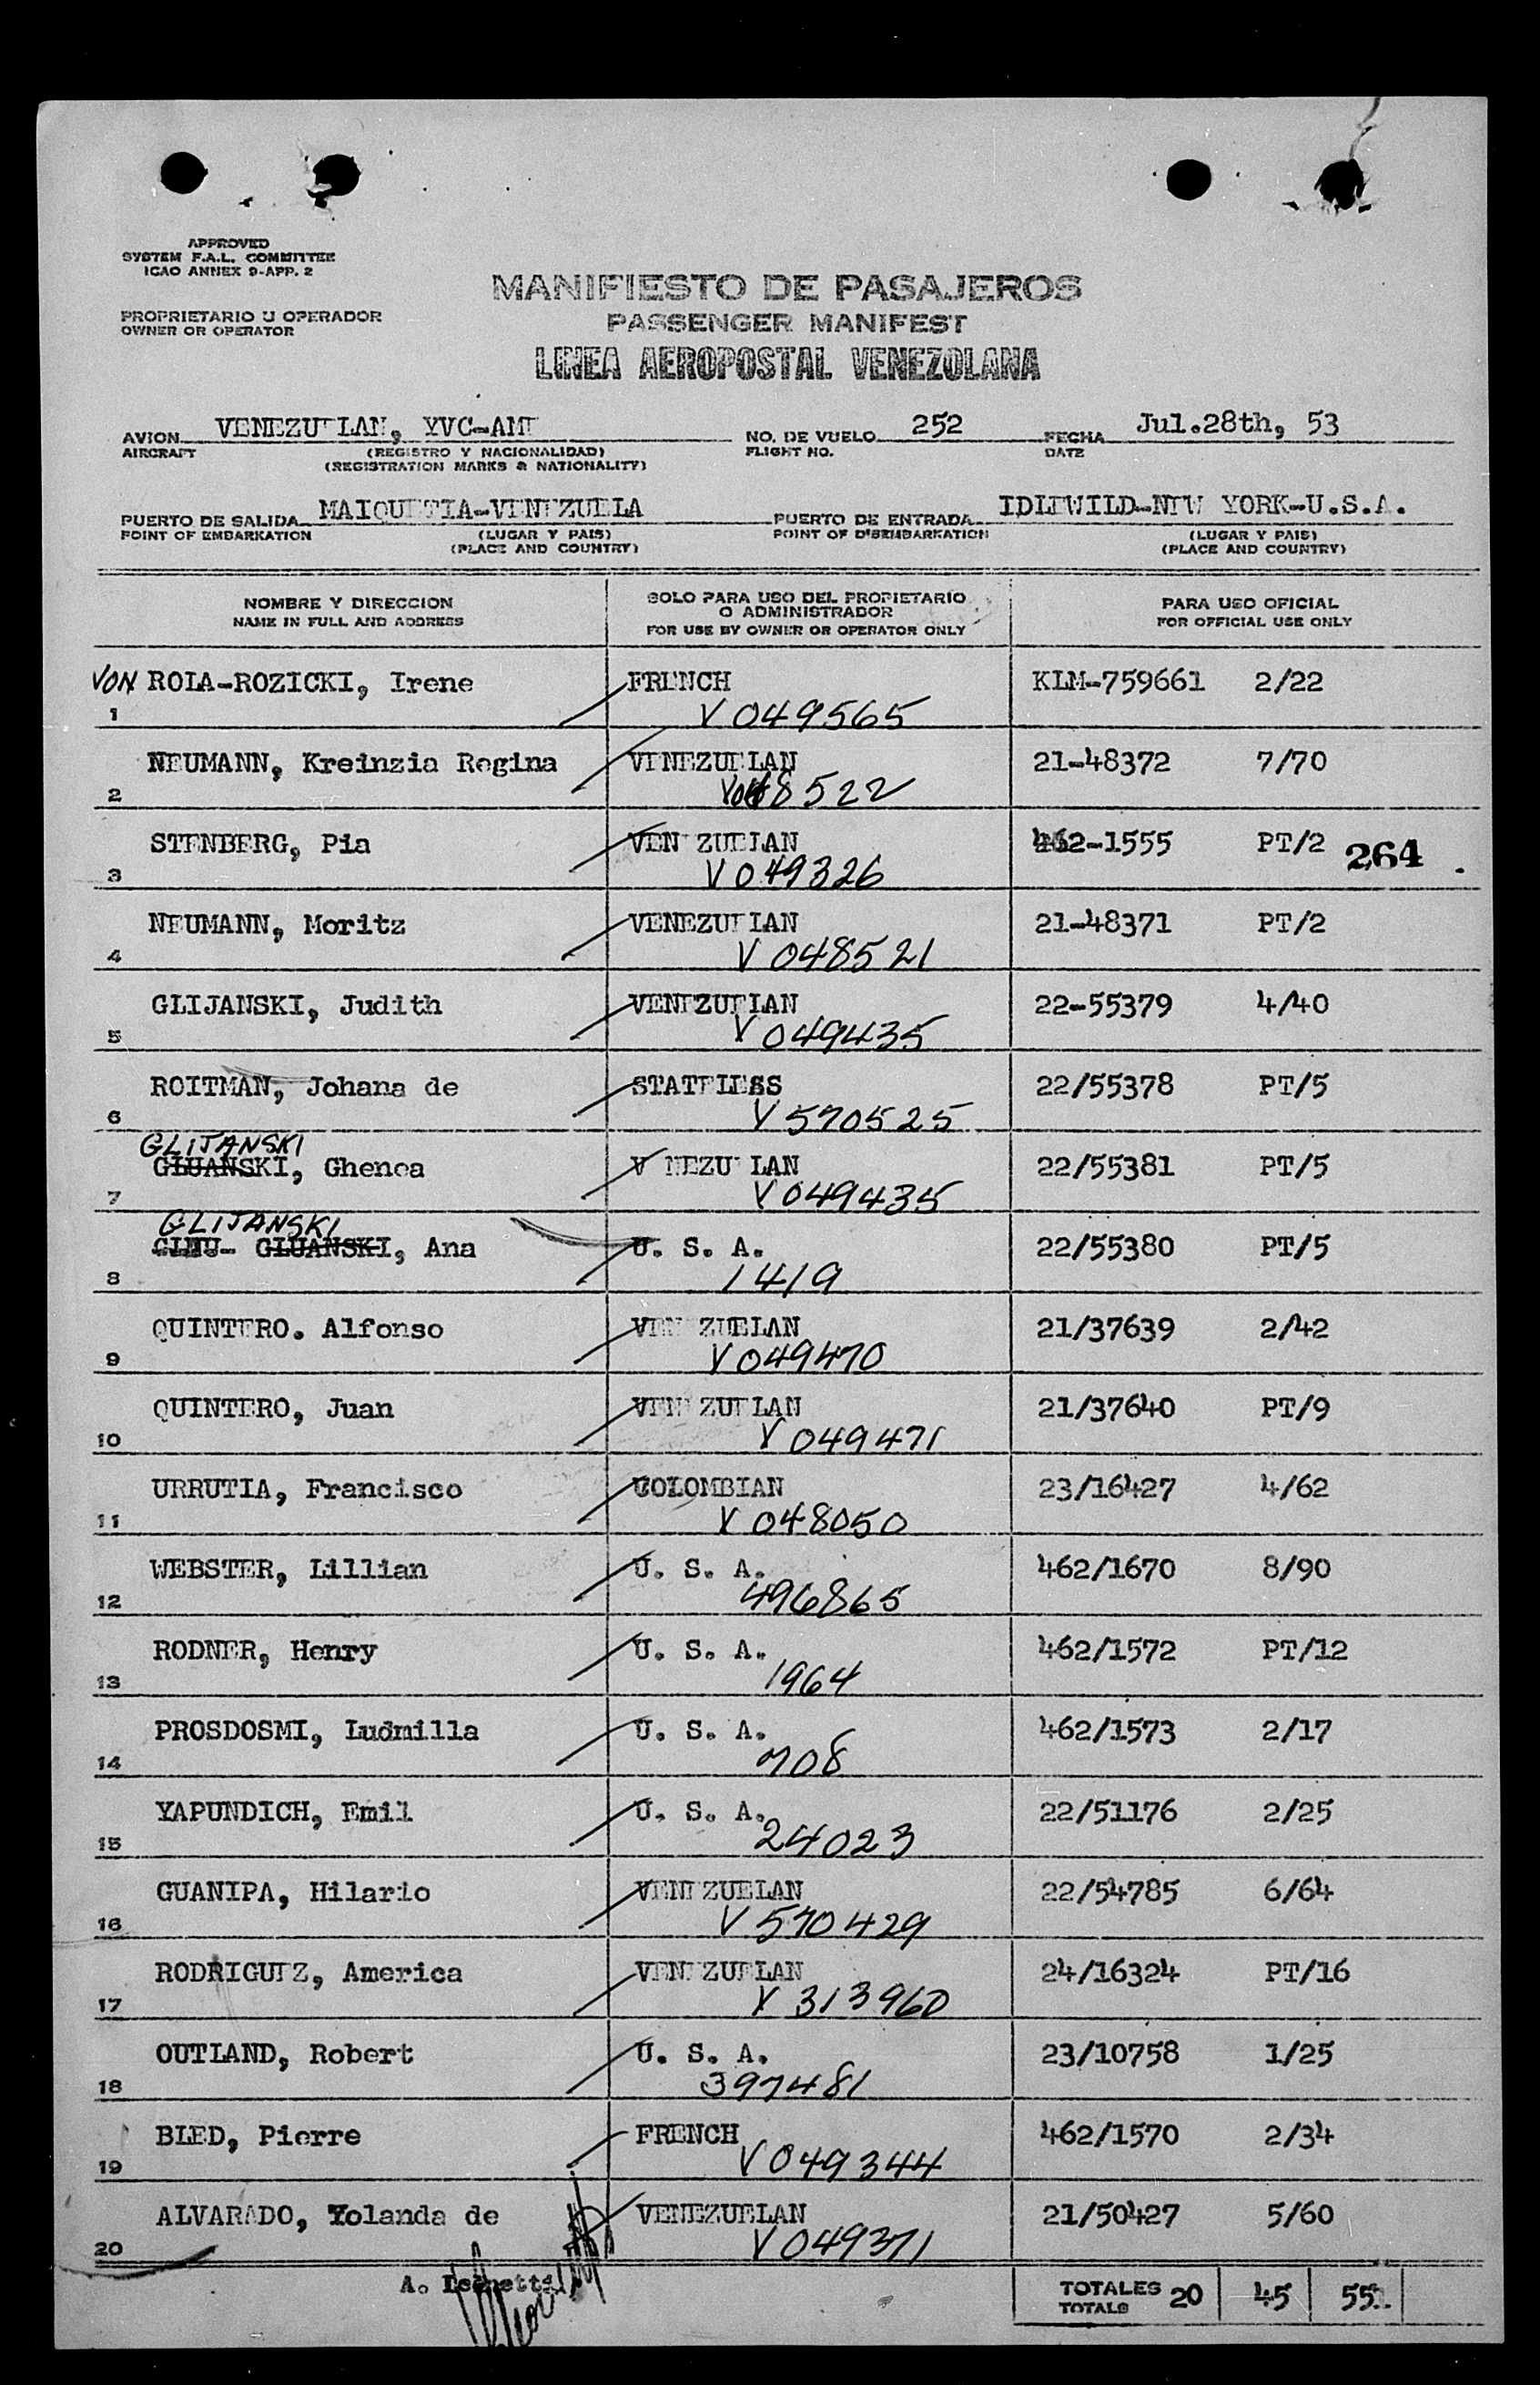 APPROVED
SYSTEM F.A.L. COMMITTEE
ICAO ANNEX 9-APP. 2
MANIFIESTO DE PASAJEROS
PROPRIETARIO U OPERADOR
OWNER OR OPERATOR
PASSENGER MANIFEST
LINEA AEROPOSTAL VENEZOLANA
AVION VENEZUELAN, YVC-AME NO. DE VUELO 252 FECHA Jul.28th, 53
AIRCRAFT (REGISTRO Y NACIONALIDAD) FLIGHT NO. DATE
(REGISTRATION MARKS & NATIONALITY)
PUERTO DE SALIDA MAIQUETIA-VENEZUELA PUERTO DE ENTRADA IDLEWILD-NEW YORK-U.S.A.
POINT OF EMBARKATION (LUGAR Y PAIS) POINT OF DISEMBARKATION (LUGAR Y PAIS)
(PLACE AND COUNTRY) (PLACE AND COUNTRY)
NOMBRE Y DIRECCION SOLO PARA USO DEL PROPIETARIO O ADMINISTRADOR PARA USO OFICIAL
NAME IN FULL AND ADDRESS FOR USE BY OWNER OR OPERATOR ONLY FOR OFFICIAL USE ONLY
VON ROLA-ROZICKI, Irene FRENCH KLM-759661 2/22
1 V 049565
NEUMANN, Kreinzia Regina VENEZUELAN 21-48372 7/70
2 V048522
STENBERG, Pia VENEZUELAN 462-1555 PT/2 264
3 V 049326
NEUMANN, Moritz VENEZUELAN 21-48371 PT/2
4 V 048521
GLIJANSKI, Judith VENEZUELAN 22-55379 4/40
5 V 049435
ROITMAN, Johana de STATELESS 22/55378 PT/5
6 V 570525
GLIJANSKI
GLUANSKI, Ghenea VENEZUELAN 22/55381 PT/5
7 V 049435
GLIJANSKI
GLUANSKI, Ana U. S. A. 22/55380 PT/5
8 1419
QUINTERO. Alfonso VENEZUELAN 21/37639 2/42
9 V 049470
QUINTERO, Juan VENEZUELAN 21/37640 PT/9
10 V 049471
URRUTIA, Francisco COLOMBIAN 23/16427 4/62
11 V 048050
WEBSTER, Lillian U. S. A. 462/1670 8/90
12 496865
RODNER, Henry U. S. A. 462/1572 PT/12
13 1964
PROSDOSMI, Ludmilla U. S. A. 462/1573 2/17
14 708
YAPUNDICH, Emil U. S. A. 22/51176 2/25
15 24023
GUANIPA, Hilario VENEZUELAN 22/54785 6/64
16 V 570429
RODRIGUEZ, America VENEZUELAN 24/16324 PT/16
17 V 313960
OUTLAND, Robert U. S. A. 23/10758 1/25
18 397481
BLED, Pierre FRENCH 462/1570 2/34
19 V 049344
ALVARADO, Yolanda de VENEZUELAN 21/50427 5/60
20 V 049371
A.
TOTALES 20 45 55
TOTALS